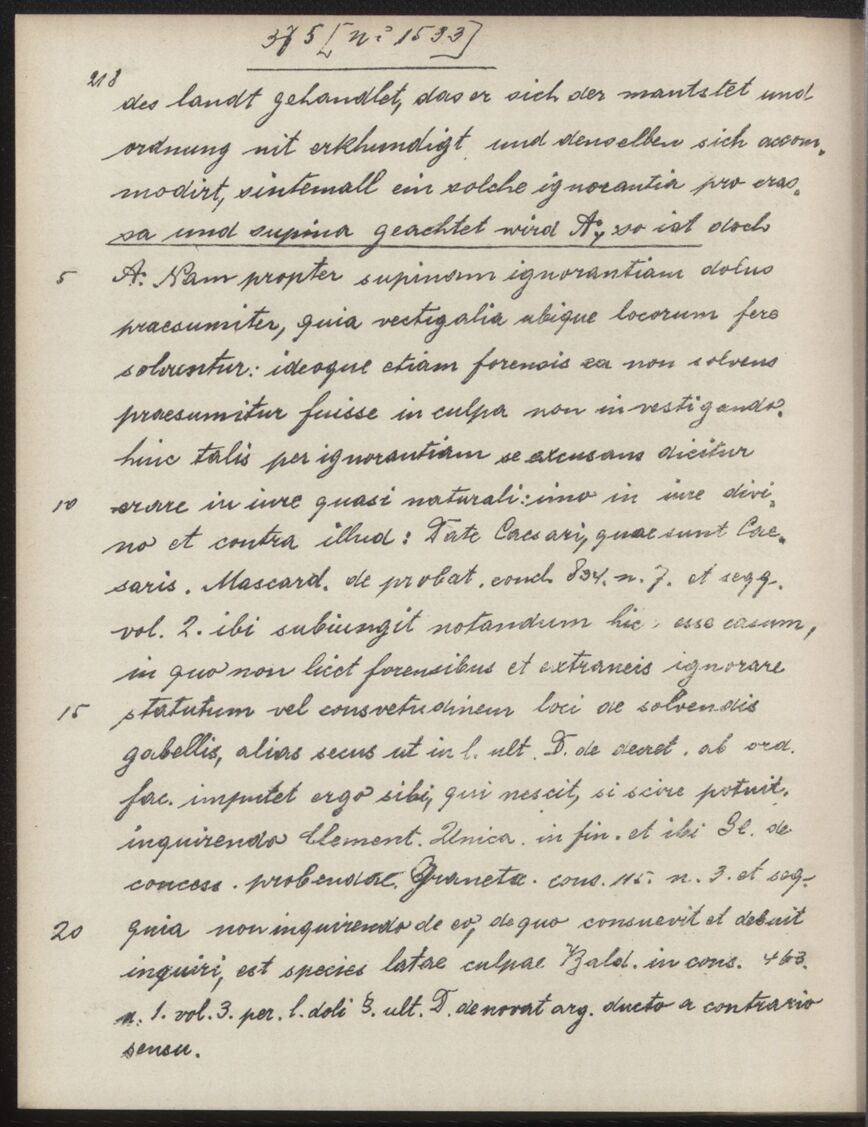 375 [nº 1533]
218
des landt gehandlet, das er sich der mautstet und
ordnung nit erkhundigt und denselben sich accom„
modirt, sintemall ein solche ignorantia pro cras„
sa und supina geachtet wird A., so ist doch
5 A: Nam propter supinam ignorantiam dolus
praesumiter, quia vectigalia ubique locorum fere
solvuntur: ideoque etiam forensis ea non solvens
praesumitur fuisse in culpa non investigando.
hinc talis per ignorantiam se excusans dicitur
10 erare in iure quasi naturali: imo in iure divi„
no et contra illud: Date Caesari, quae sunt Cae„
saris. Mascard. de probat. concl. 834. n. 7. et seqq.
vol. 2. ibi subiungit notandum hic esse casum,
in quo non licet forensibus et extraneis ignorare
15 statutum vel consvetudinem loci de solvendis
gabellis, alias secus ut in l. ult. D. de decret. ab ord.
fac. imputet ergo sibi, qui nescit, si scire potuit.
inquirendo Clement. Unica. in fin. et ibi Gl. de
concess. probendae. Graneta. cons. 115. n. 3. et seq.
20 quia non inquirendo de eo, de quo consuevit et debuit
inquiri, est species latae culpae Bald. in cons. 463.
n. 1. vol. 3. per. l. doli §. ult. D. de novat arg. ducto a contrario
sensu.